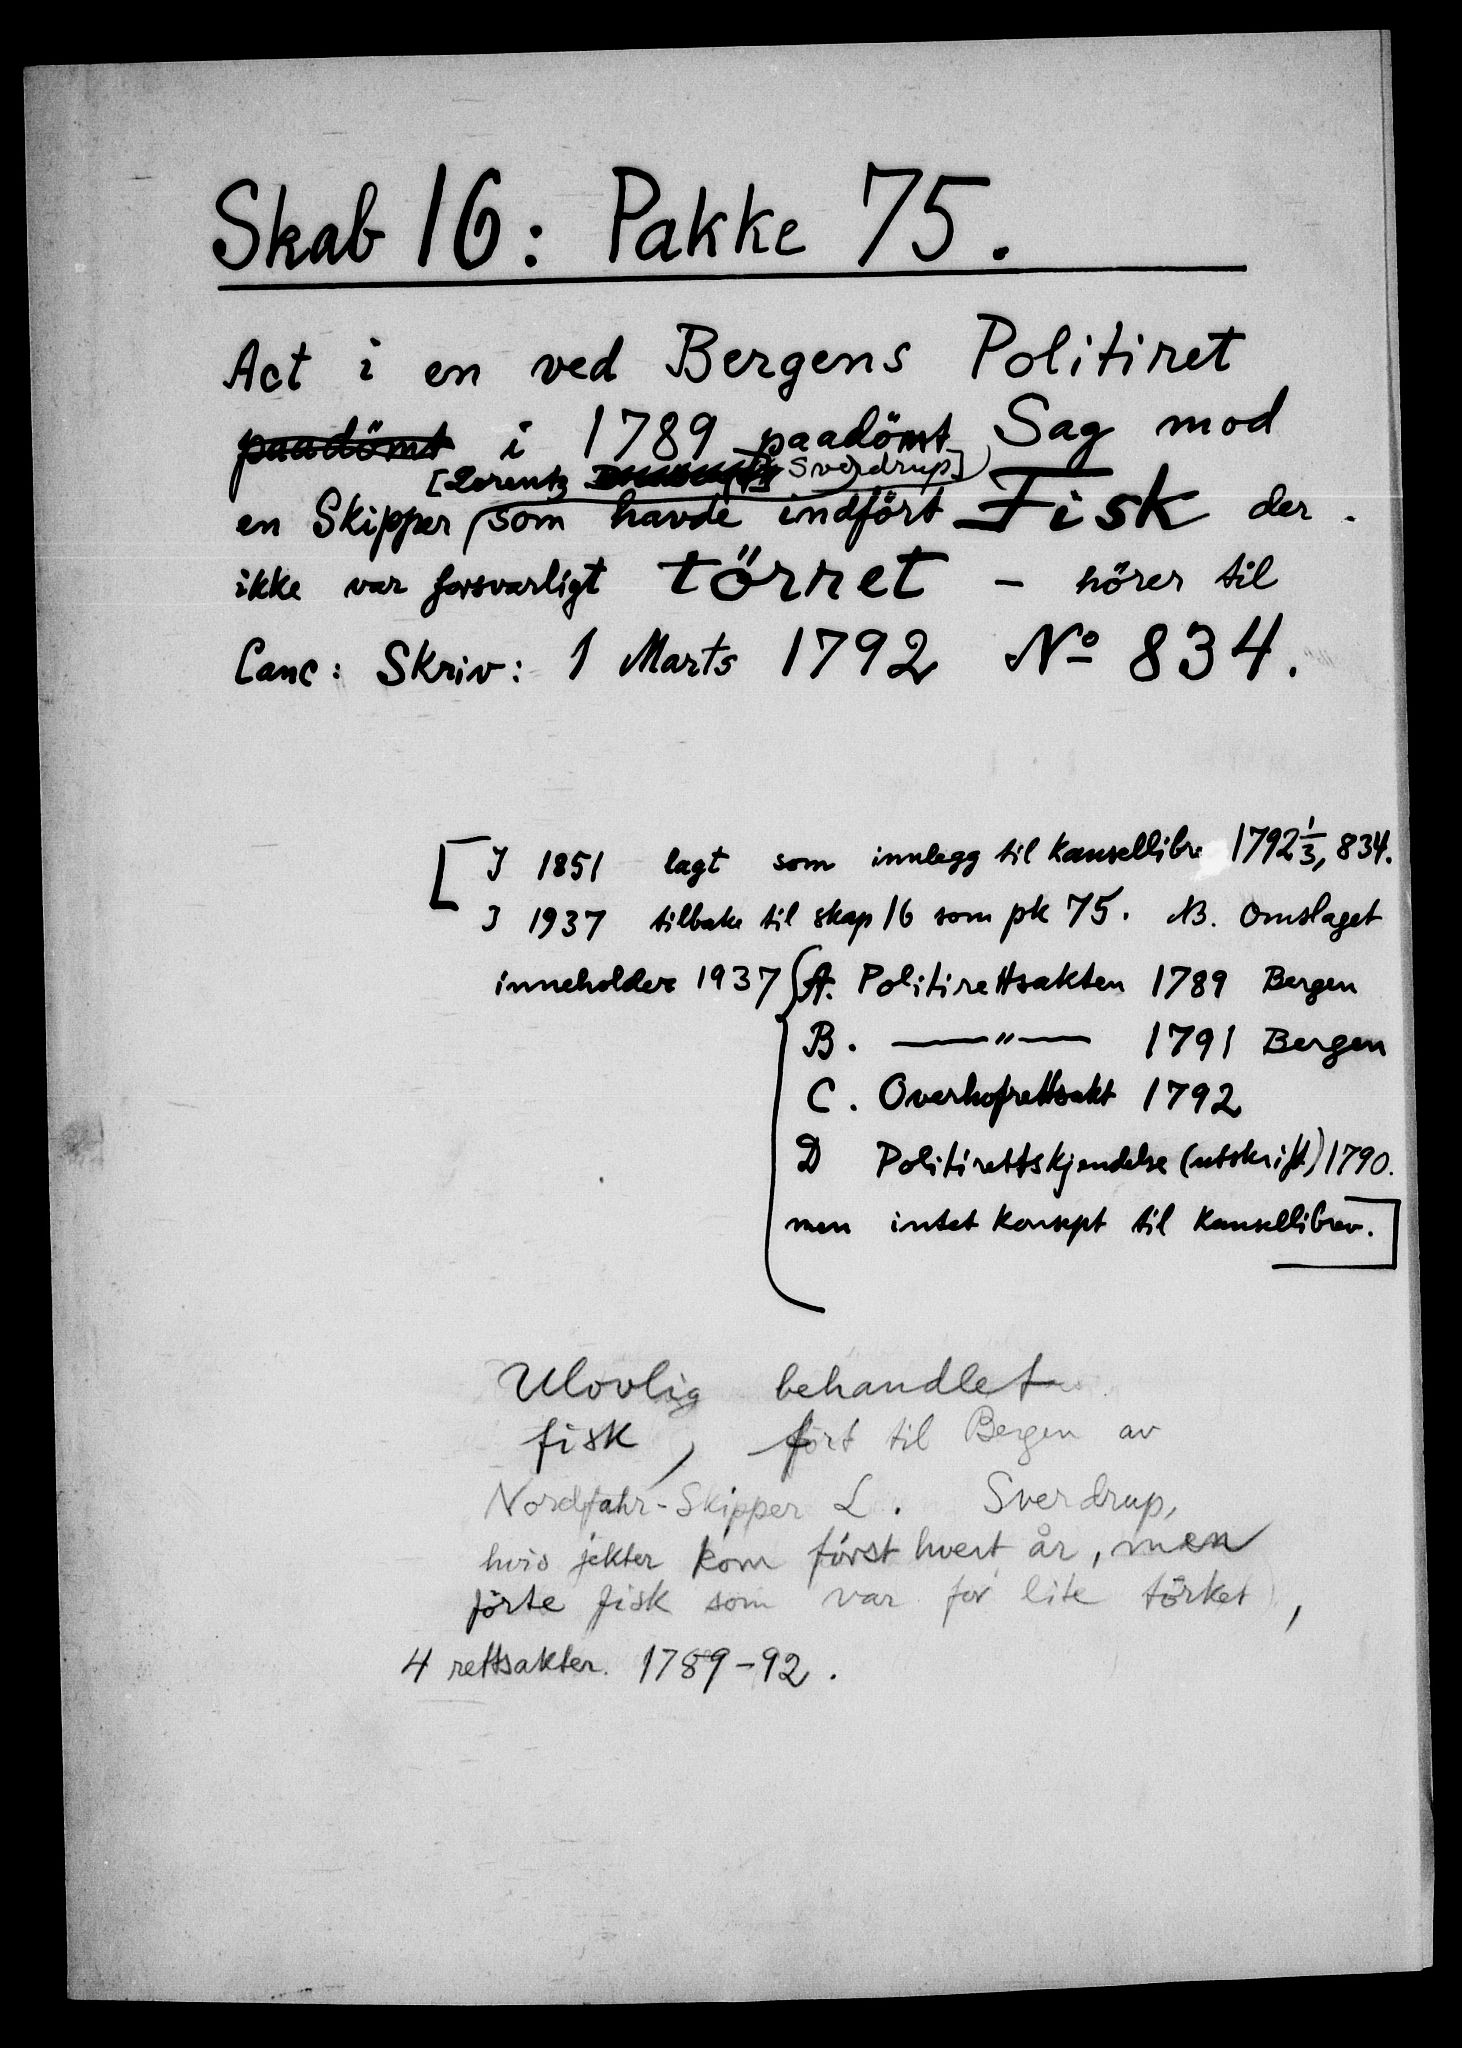 Skab 16: Pakke 75.
Act i en ved Bergens Politiret
paadömt i 1789 paadömt Sag mod
[Lorentz Sverdrup]
en Skipper som havde indfört Fisk der
ikke var forsvarligt törret – hörer til
Canc: Skriv: 1 Marts 1792 No 834.
[I 1851 lagt som innlegg til kansellibr 1792 1/3, 834.
I 1937 tilbake til skap 16 som pk 75. NB. Omslaget
inneholder 1937 A. Politirettsakten 1789 Bergen
B. —"— 1791 Bergen
C. Overhofrettsakt 1792
D Politirettskjendelse (utskrift) 1790.
men intet konsept til kansellibrev.]
Ulovlig behandlet
fisk, fört til Bergen av
Nordfahr-Skipper L. Sverdrup,
hvis jekter kom först hvert år, men
förte fisk som var for lite törket,
4 rettsakter. 1789-92.